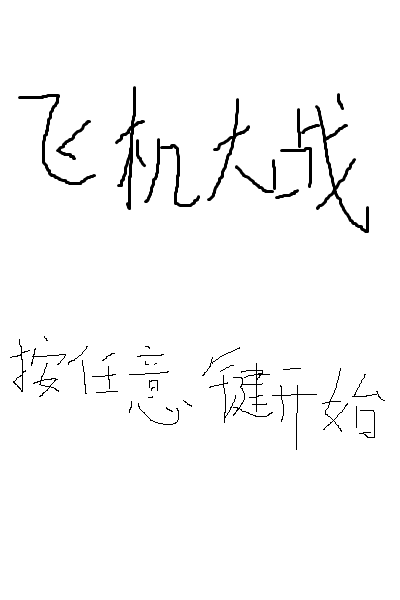 飞机大战
按任意键开始